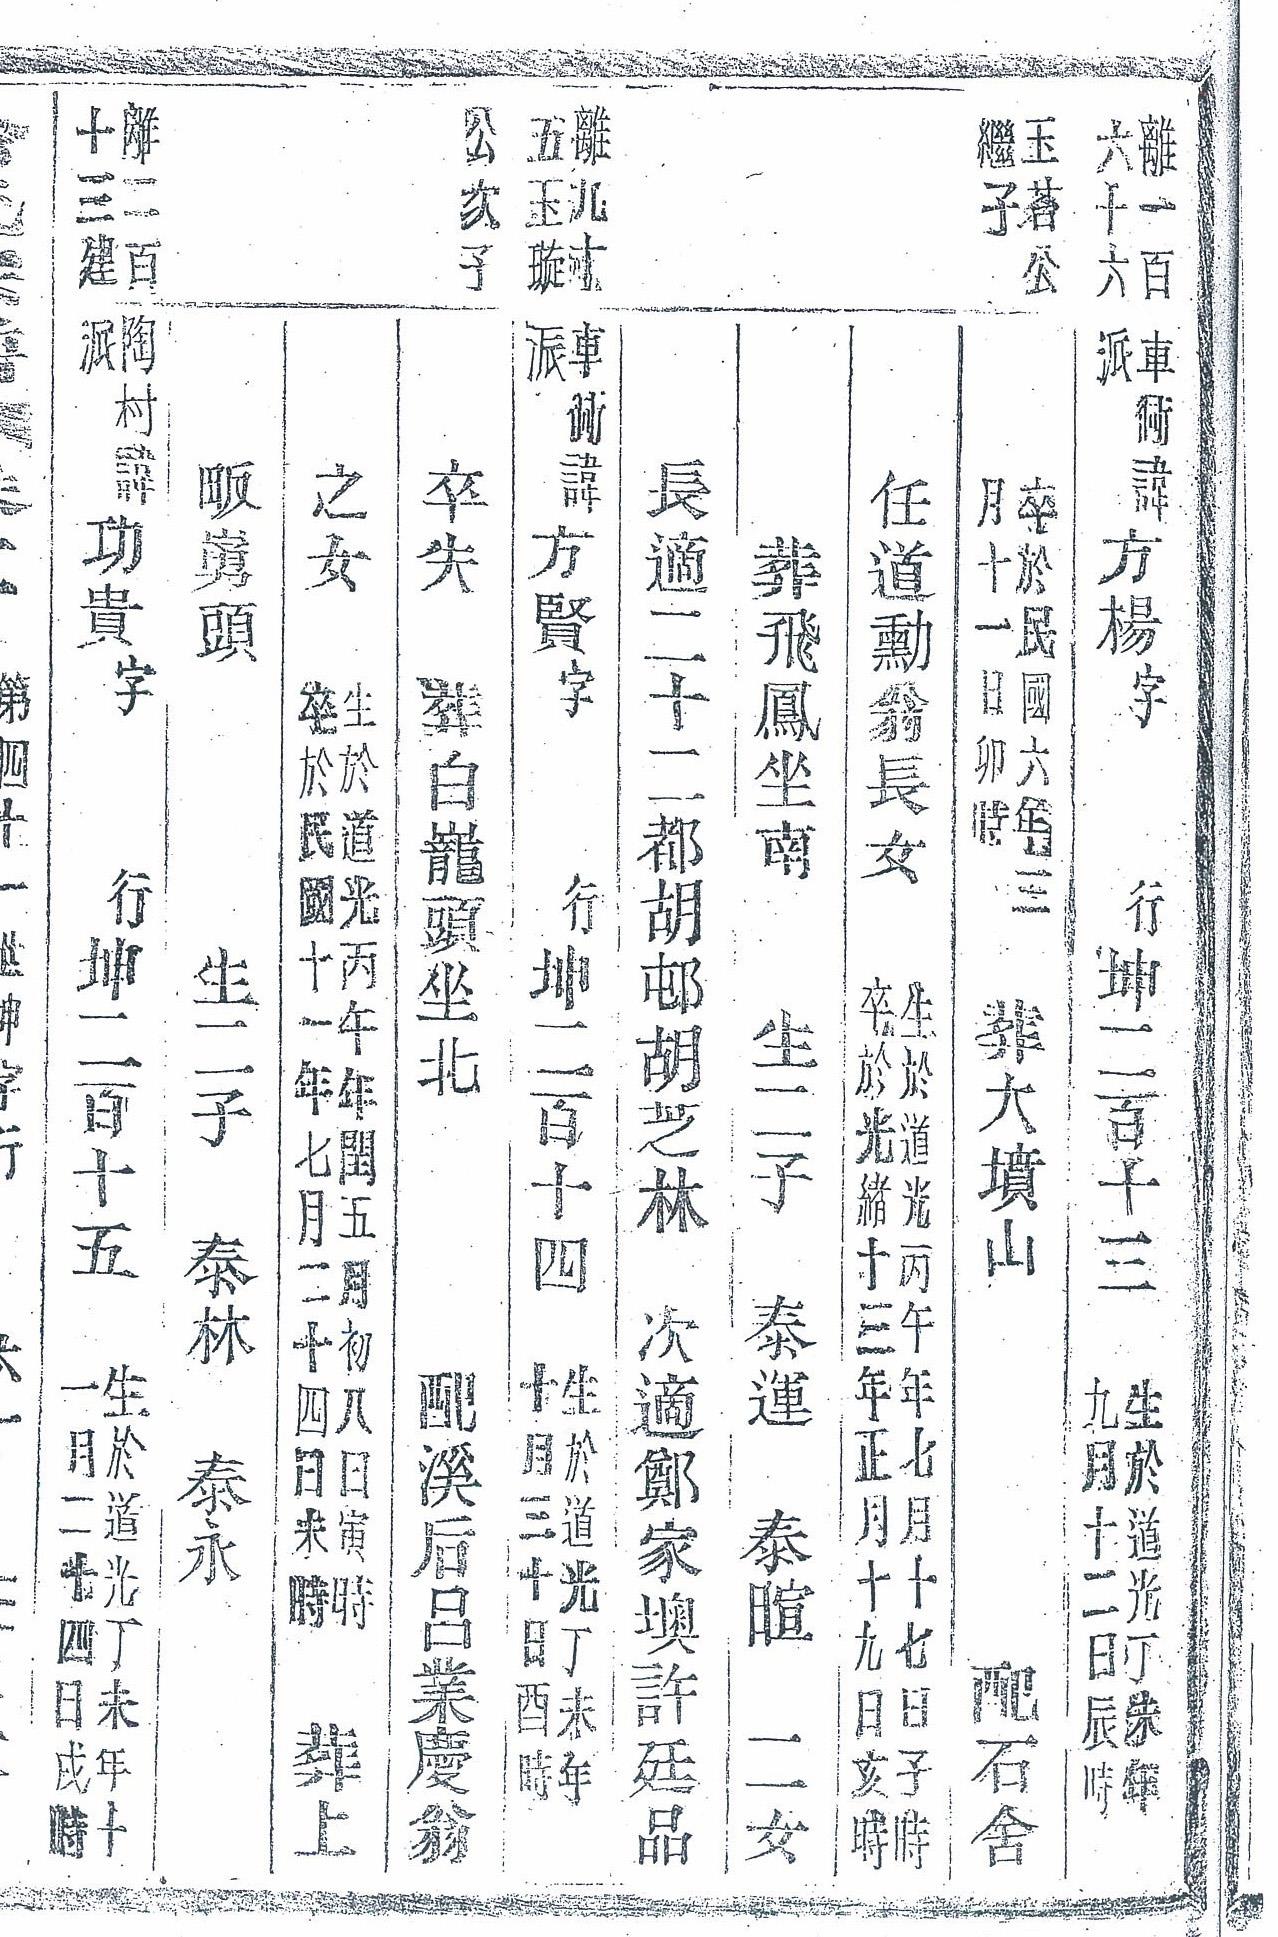 離一百六十六 車衖派諱方楊字 行坤二百十三 生於道光丁未年九月十二日辰時
玉茖公繼子 卒於民國六年三月十一日卯時 葬大墳山 配石舍
任道勳翁長女 生於道光丙午年七月十七日子時 卒於光緒十三年正月十九日亥時
葬飛鳳坐南 生二子 泰運 泰暄 二女
長適二十二都胡邨胡芝林 次適鄭家墺許廷品
離九十五玉璇 車衖派諱方賢字 行坤二百十四 生於道光丁未年十月三十日酉時
公次子 卒失 葬白巃頭坐北 配溪后呂業慶翁
之女 生於道光丙午年閏五月初八日寅時 卒於民國十一年七月二十四日未時 葬上
畈塢頭 生二子 泰林 泰永
離二百十三建 陶村派諱功貴字 行坤二百十五 生於道光丁未年十一月二十四日戌時
第四十一